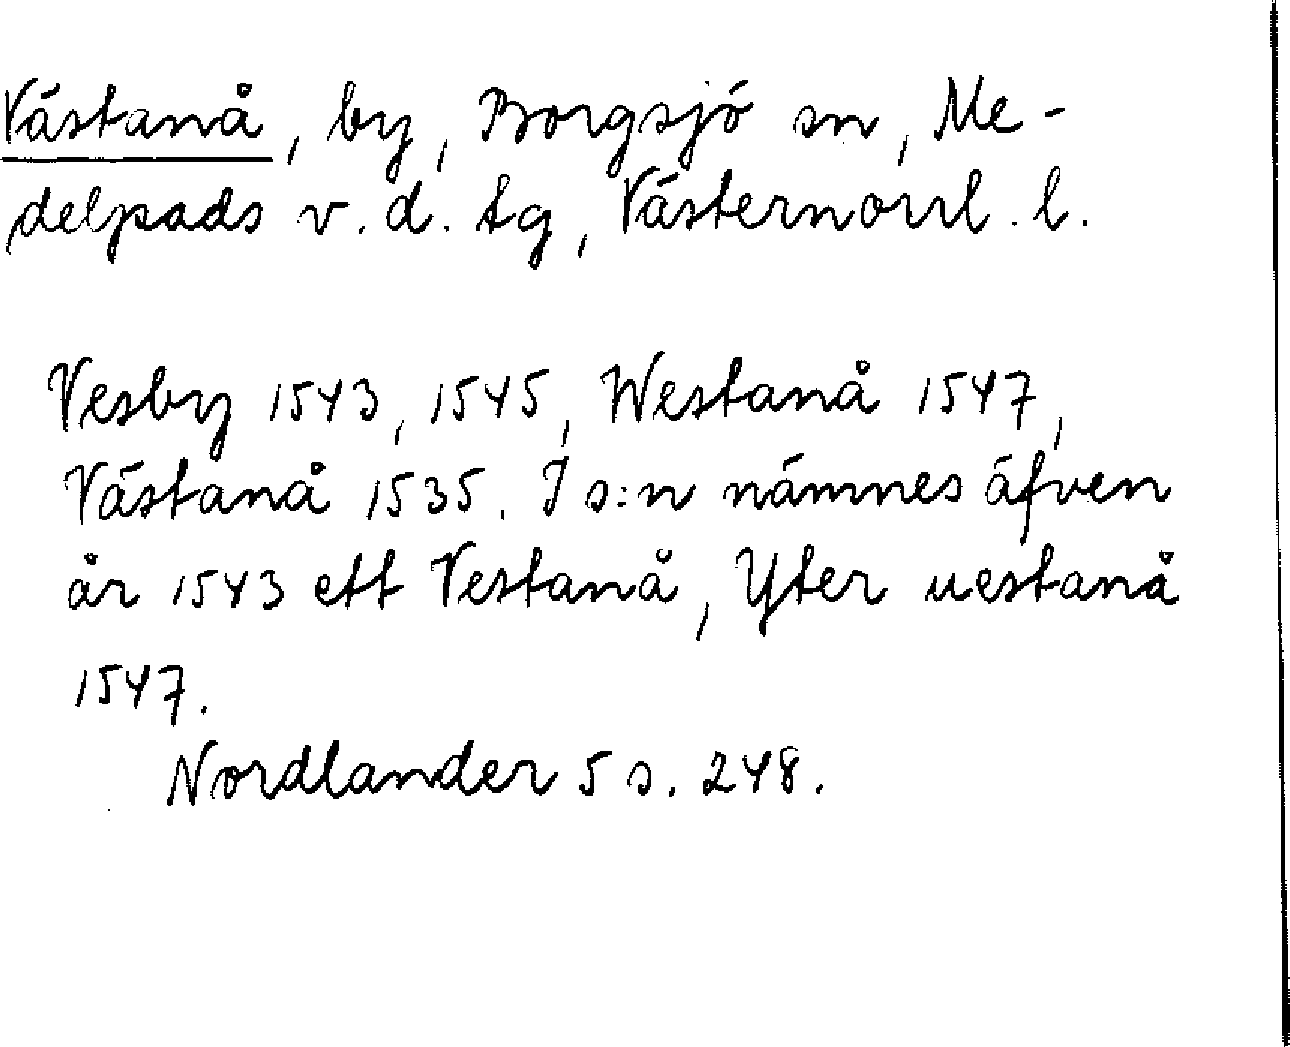 Västanå, by, Borgsjö sn, Me-
delpads v. d. tg, Västernorrl. l.
Vesby 1543, 1545, Westanå 1547,
Västanå 1535. I s:n nämnes äfven
år 1543 ett Vestanå, Yter uestanå
1547.
Nordlander 5 s. 248.